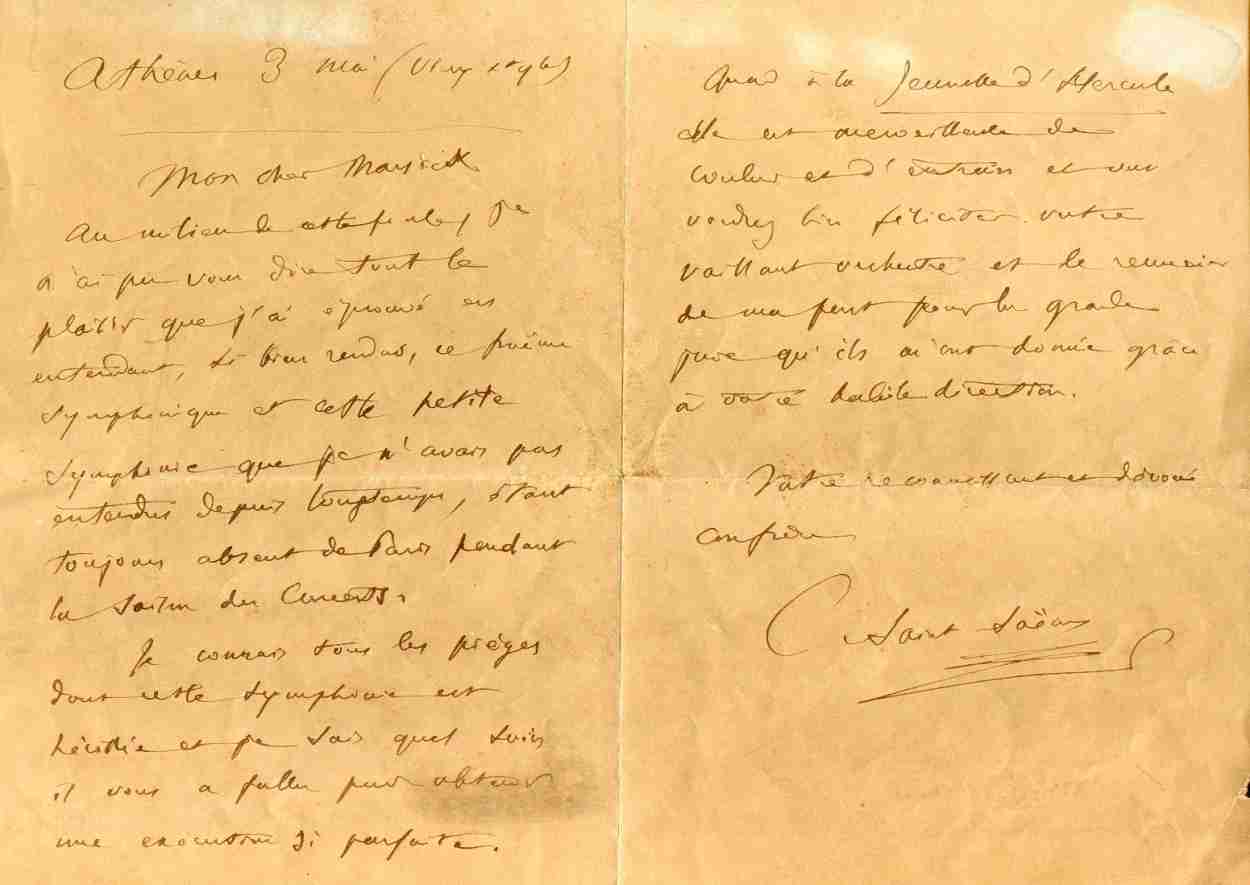 Athènes 3 Mai (
Mon cher Marsick
Au milieu de cette foule, je
n'ai pu vous dire tout le
plaisir que j'ai éprouvé en
entendant, si bien rendus, ce poème
symphonique et cette petite
symphonie que je n'avais pas
entendus depuis longtemps, étant
toujours absent de Paris pendant
la saison des Concerts.
Je connais tous les pièges
dont cette symphonie est
hérissée et je sais quels soins
il vous a fallu pour obtenir
une exécution si parfaite.
Quand à la Jeunesse d'Hercule
elle est merveilleuse de
couleur et d'entrain et vous
voudrez bien féliciter votre
vaillant orchestre et le remercier
de ma part pour la grande
joie qu'ils m'ont donnée grâce
à votre habile direction.
Votre reconnaissant et dévoué
confrère
C Saint-Saëns